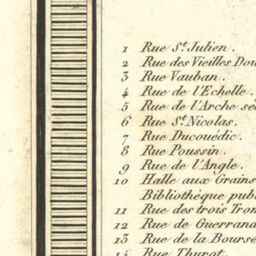 1 Rue St. Julien.
2 Rue des Vieilles
3 Rue Vauban.
4 Rue de l'Echelle.
5 Rue de l'Arche
6 Rue St. Nicolas.
7 Rue Ducouëdic.
8 Rue Poussin.
9 Rue de l'Angle.
10 Halle aux Grains
Bibliothéque
11 Rue des trois
12 Rue de Guerrand
13 Rue de la Bourse
Rue Thurot.